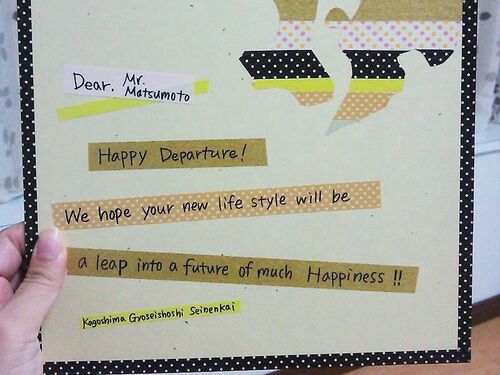 Dear. Mr.
Matsumoto
Happy Departure!
We hope your new life style will be
a leap into a future of much Happiness !!
Kagoshima Gyoseishoshi Seinenkai